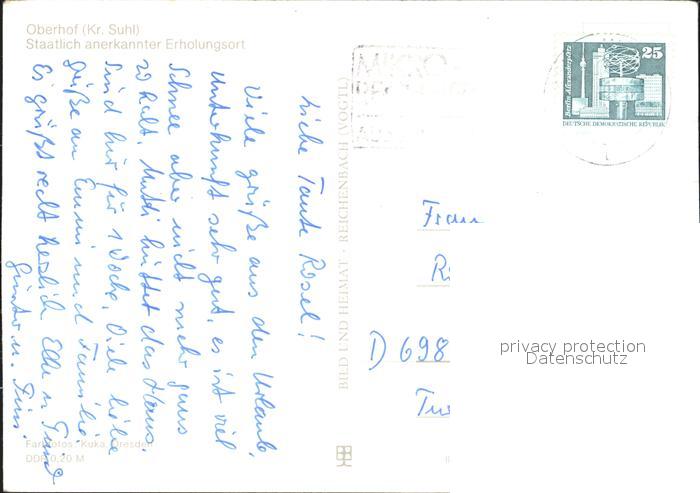 Oberhof (Kr. Suhl)
Staatlich anerkannter Erholungsort
Liebe Tante Rosel!
Viele Grüße aus dem Urlaub,
Unterkunft sehr gut, es ist viel
Schnee aber nicht mehr ganz
so kalt. Mutti hütet das Haus.
Sind hier für 1 Woche. Viele liebe
Grüße an Emmi und Familie
Es grüßt recht herzlich Elke u.
Günter u.
Farbfotos: Kuka, Dresden
DDR 0,20 M
BILD UND HEIMAT · REICHENBACH (VOGTL)
MIKRO-
25
Berlin, Alexanderplatz
DEUTSCHE DEMOKRATISCHE REPUBLIK
Frau
D 698
privacy protection
Datenschutz